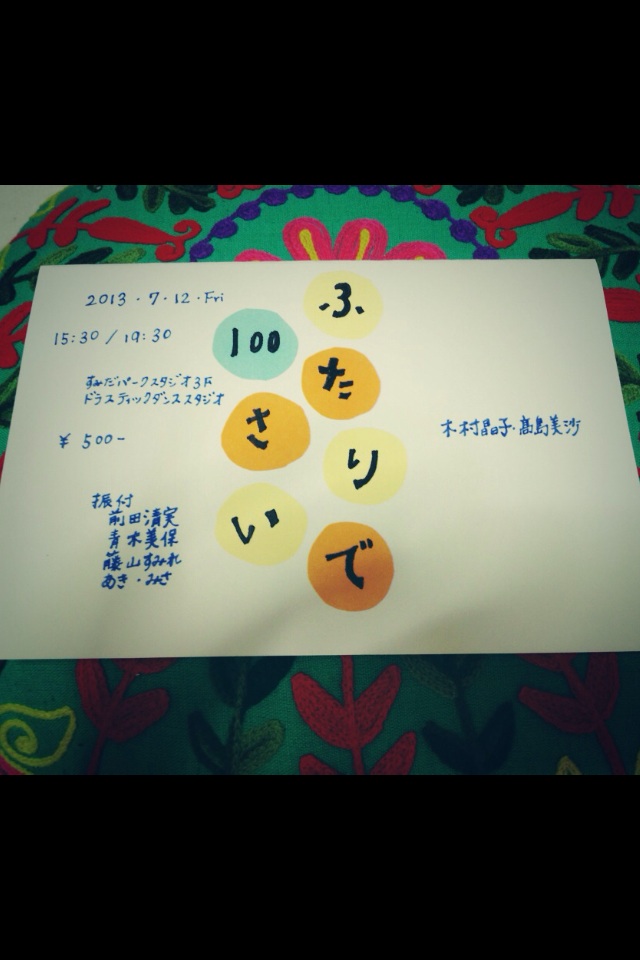 ふたりで
100さい
2013・7・12・Fri
15:30 / 19:30
すみだパークスタジオ3F
ドラスティックダンススタジオ
¥ 500-
振付
前田清実
青木美保
藤山すみれ
あき・みさ
木村晶子・髙島美沙